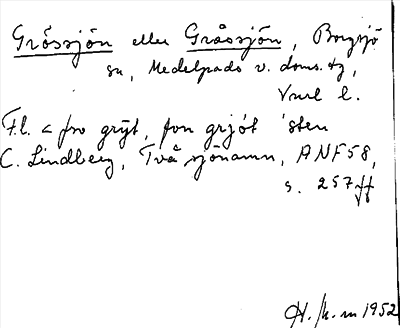 Grössjön eller Gråssjön, Borgsjö
sn, Medelpads v. doms. tg,
Vnrl l.
F.l. < fro grýt, fvn grjót 'sten
C. Lindberg, Två sjönamn, ANF 58,
s. 257 ff
1952